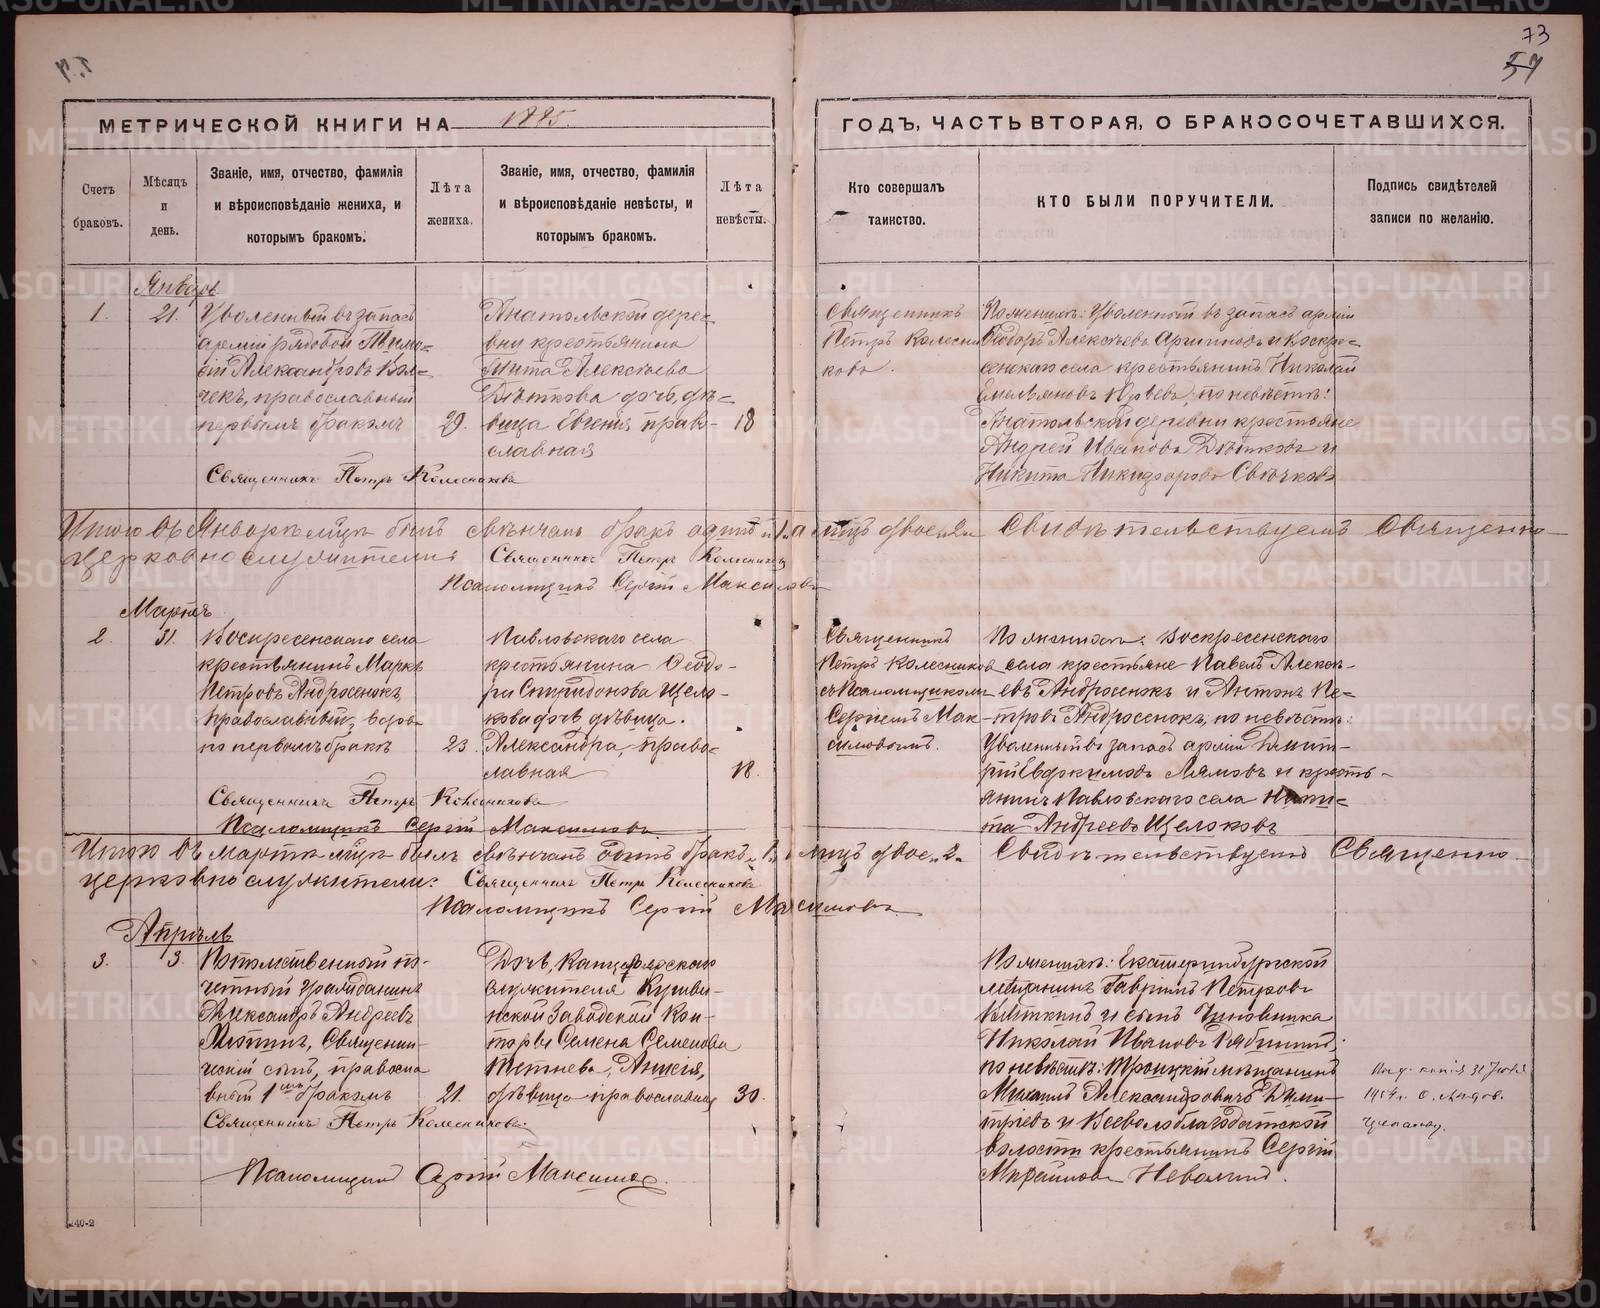 73
57
МЕТРИЧЕСКОЙ КНИГИ НА 1895.
ГОДЪ, ЧАСТЬ ВТОРАЯ, О БРАКОСОЧЕТАВШИХСЯ.
Счетъ браковъ.
Мѣсяцъ и день.
Званіе, имя, отчество, фамилія
и вѣроисповѣданіе жениха, и
которымъ бракомъ.
Лѣта жениха.
Званіе, имя, отчество, фамилія
и вѣроисповѣданіе невѣсты, и
которымъ бракомъ.
Лѣта невѣсты.
Кто совершалъ
таинство.
КТО БЫЛИ ПОРУЧИТЕЛИ.
Подпись свидѣтелей
записи по желанію.
Январь
1.
21.
Уволенный въ запасъ
арміи рядовой
Александровъ
православный
первымъ бракомъ
29.
Анатольской дерев-
ни крестьянина
Тита Алексѣева
дочь, дѣ-
вица Евгенія, право-
славная
18
Священникъ
Петръ Колесни
ковъ.
По женихѣ: Уволенный въ запасъ арміи
Ѳеодоръ Алексѣевъ и Воскре-
сенскаго села крестьянинъ Николай
Емельяновъ по невѣстѣ:
Анатольской деревни крестьяне
Андрей Ивановъ и
Никита Никифоровъ Свѣчковъ
Священникъ Петръ Колесниковъ
Итого въ Январѣ м-цѣ былъ свѣнчанъ бракъ одинъ „1“ а лицъ двое „2“ Свидѣтельствуемъ Священно-
церковнослужители:
Священникъ Петръ Колесниковъ
Псаломщикъ Сергій Максимовъ
Мартъ
2.
31.
Воскресенскаго села
крестьянинъ Маркъ
Петровъ Андросенокъ,
православный,
по первомъ бракѣ
23.
Павловскаго села
крестьянина Ѳеодо-
ра Спиридонова Щело-
кова дочь дѣвица
Александра, право-
славная
18.
Священникъ
Петръ Колесниковъ
съ Псаломщикомъ
Сергіемъ Мак-
симовымъ.
По женихѣ: Воскресенскаго
села крестьяне Павелъ Алексѣ-
евъ Андросенокъ и Антонъ Пе-
тровъ Андросенокъ, по невѣстѣ:
Уволенный въ запасъ арміи Дмит-
рій Евдокимовъ Лямовъ и кресть-
янинъ Павловскаго села Ники-
та Андреевъ Щелоковъ
Священникъ Петръ Колесниковъ
Псаломщикъ Сергій Максимовъ.
Итого въ Мартѣ м-цѣ былъ свѣнчанъ одинъ бракъ „1“ лицъ двое „2“ Свидѣтельствуемъ Священно-
церковнослужители:
Священникъ Петръ Колесниковъ
Псаломщикъ Сергій Максимовъ
Апрѣль
3.
3.
Потомственный по-
четный гражданинъ
Александръ Андреевъ
Священни-
ческій сынъ, православ
ный 1мъ бракомъ
21.
Дочь Канцелярскаго
служителя Кушви-
нской Заводской Кон-
торы Семена Семенова
Тетнева, Анисія,
дѣвица православная
30.
По женихѣ: Екатеринбургской
мѣщанинъ Гавріилъ Петровъ
и сынъ Чиновника
Николай Ивановъ Рябинин;
по невѣстѣ: Троицкій мѣщанинъ
Михаилъ Александровичъ Дми-
тріевъ и Всеволодоблагодатской
волости крестьянинъ Сергій
Михайловъ Неволинъ.
Священникъ Петръ Колесниковъ.
Псаломщикъ Сергій Максимовъ.
240-2
METRIKI.GASO-URAL.RU